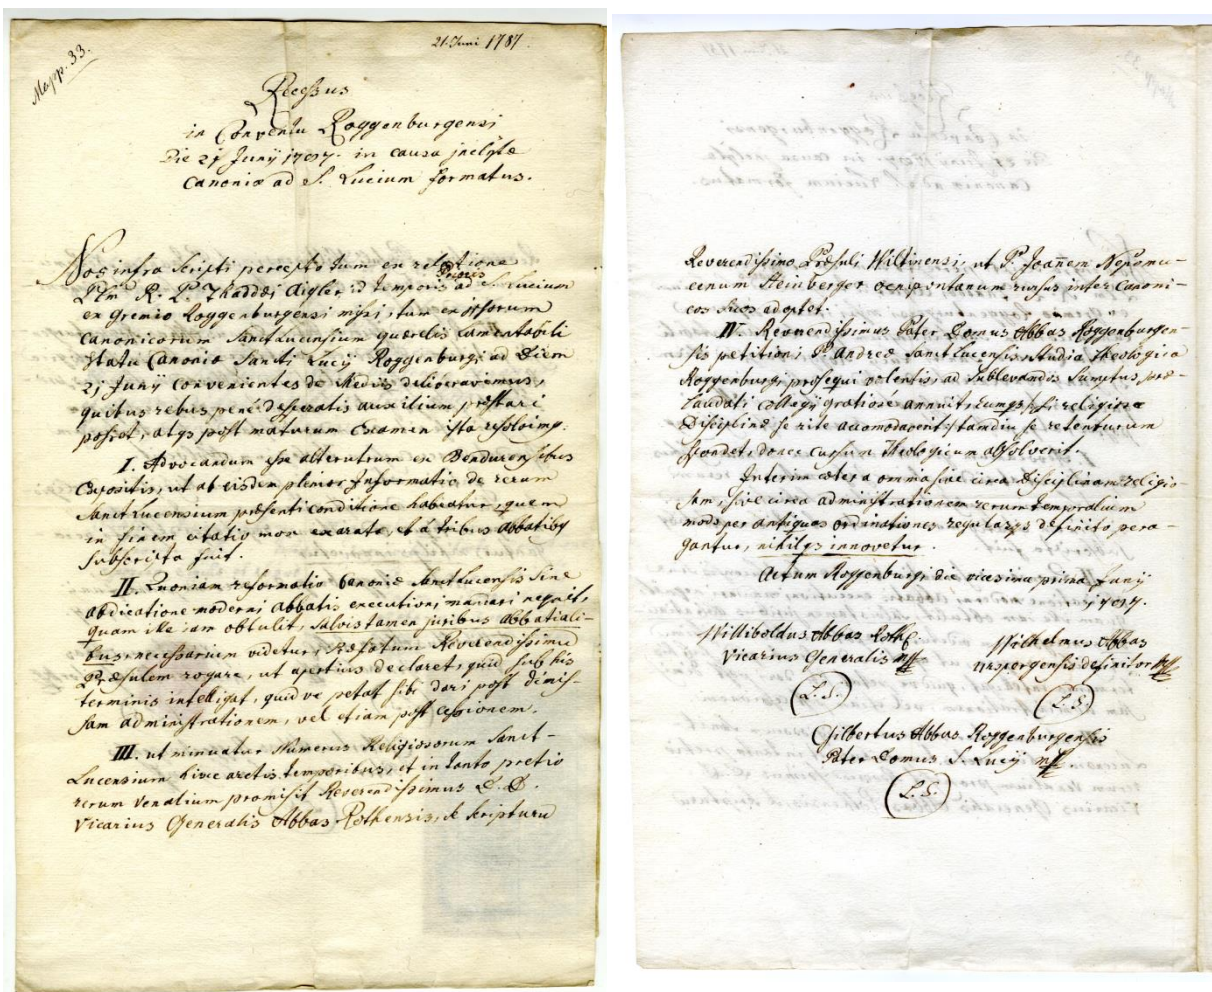 Mapp. 33.
21. Juni 1787.
Recessus
in Conventu Roggenburgensi
Die 21 Junÿ 1787. in causa jnclÿtæ
Canoniæ ad S. Lucium formatus.
Nos infra scripti percepto tum ex relatione
Plm R. P. Thaddæi Aigler id temporis Prioris ad S. Lucium
ex gremio Roggenburgensi missi, tum ex ipsorum
Canonicorum Sanct Lucensium querelis lamentabili
statu Canoniæ Sancti Lucÿ Roggenburgi ad Diem
21 Junÿ convenientes de Mediis deliberavimus,
quibus rebus penè desperatis auxilium præstari
posset, atqs post maturum Examen ista resolvims.
I. Advocandum esse alterutrum ex Bendurensibus
Expositis, ut ab eisdem plenior Informatio de rerum
Sanct Lucensium præsenti conditione habeatur, quem
in finem citatio mox exarata, et à tribus Abbatibs
subscripta fuit.
II. Quoniam reformatio Canoniæ Sanct Lucensis sine
abdicatione moderni Abbatis executioni mandari nequit,
quam ille iam obtulit, salvis tamen juribus Abbatiali-
bus, necessarium videtur, Præfatum Reverendissimum
Præsulem rogare, ut apertius declaret, quid sub his
terminis intelligat, quid ve petat sibi dari post dimis-
sam administrationem, vel etiam post cessionem.
III. ut minuatur Numerus Religiosorum Sanct-
Lucensium hisce arctis temporibus, et in tanto pretio
rerum venalium promisit Reverendissimus D. D.
Vicarius Generalis Abbas Rothensis, se scripturū
Reverendissimo Præsuli Wiltinensi, ut P. Joañem Nepomu-
cenum Heinberger Oenipontanum rursus inter Canoni-
cos suos adoptet.
IV. Reverendissimus Pater Domus Abbas Roggenburgen-
sis petitioni P. Andreæ Sanct Lucensis, Studia Theologica
Roggenburgi prosequi volentis, ad sublevandos sumptus præ-
laudati Collegÿ gratiose annuit, religiosæ
Disciplinæ se rite accomodaverit, tamdiu se retenturum
spondet, donec cursum Theologicum absolverit.
Interim cætera omnia sive circa Disciplinam religio-
sam, sive circa administrationem rerum temporalium
modo per antiquas ordinationes regularqs definito pera-
gantur, nihilqs innovetur.
Actum Roggenburgi die vicesima prima Junÿ
1787.
Willibaldus Abbas Rothē.
Vicarius Generalis mp
Wilhelmus Abbas
Urspergensis definitor mp
L. S.
L. S.
Gilbertus Abbas Roggenburgensis
Pater Domus S. Lucÿ mp.
L. S.